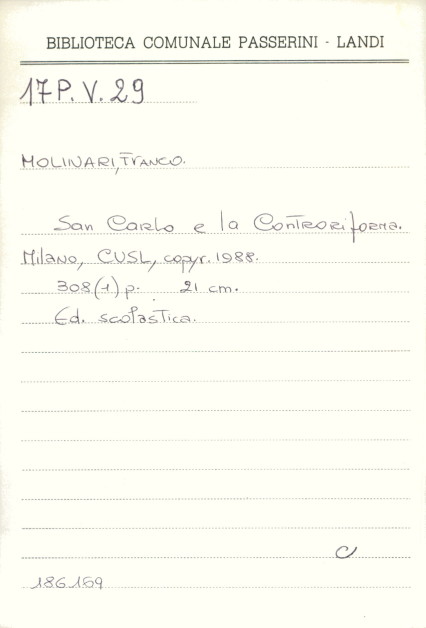 BIBLIOTECA COMUNALE PASSERINI - LANDI
17 P. V. 29
MOLINARI, Franco.
San Carlo e la Controriforma.
Milano, CUSL, copyr. 1988.
308 (1) p. 21 cm.
Ed. scolastica.
C
186.159